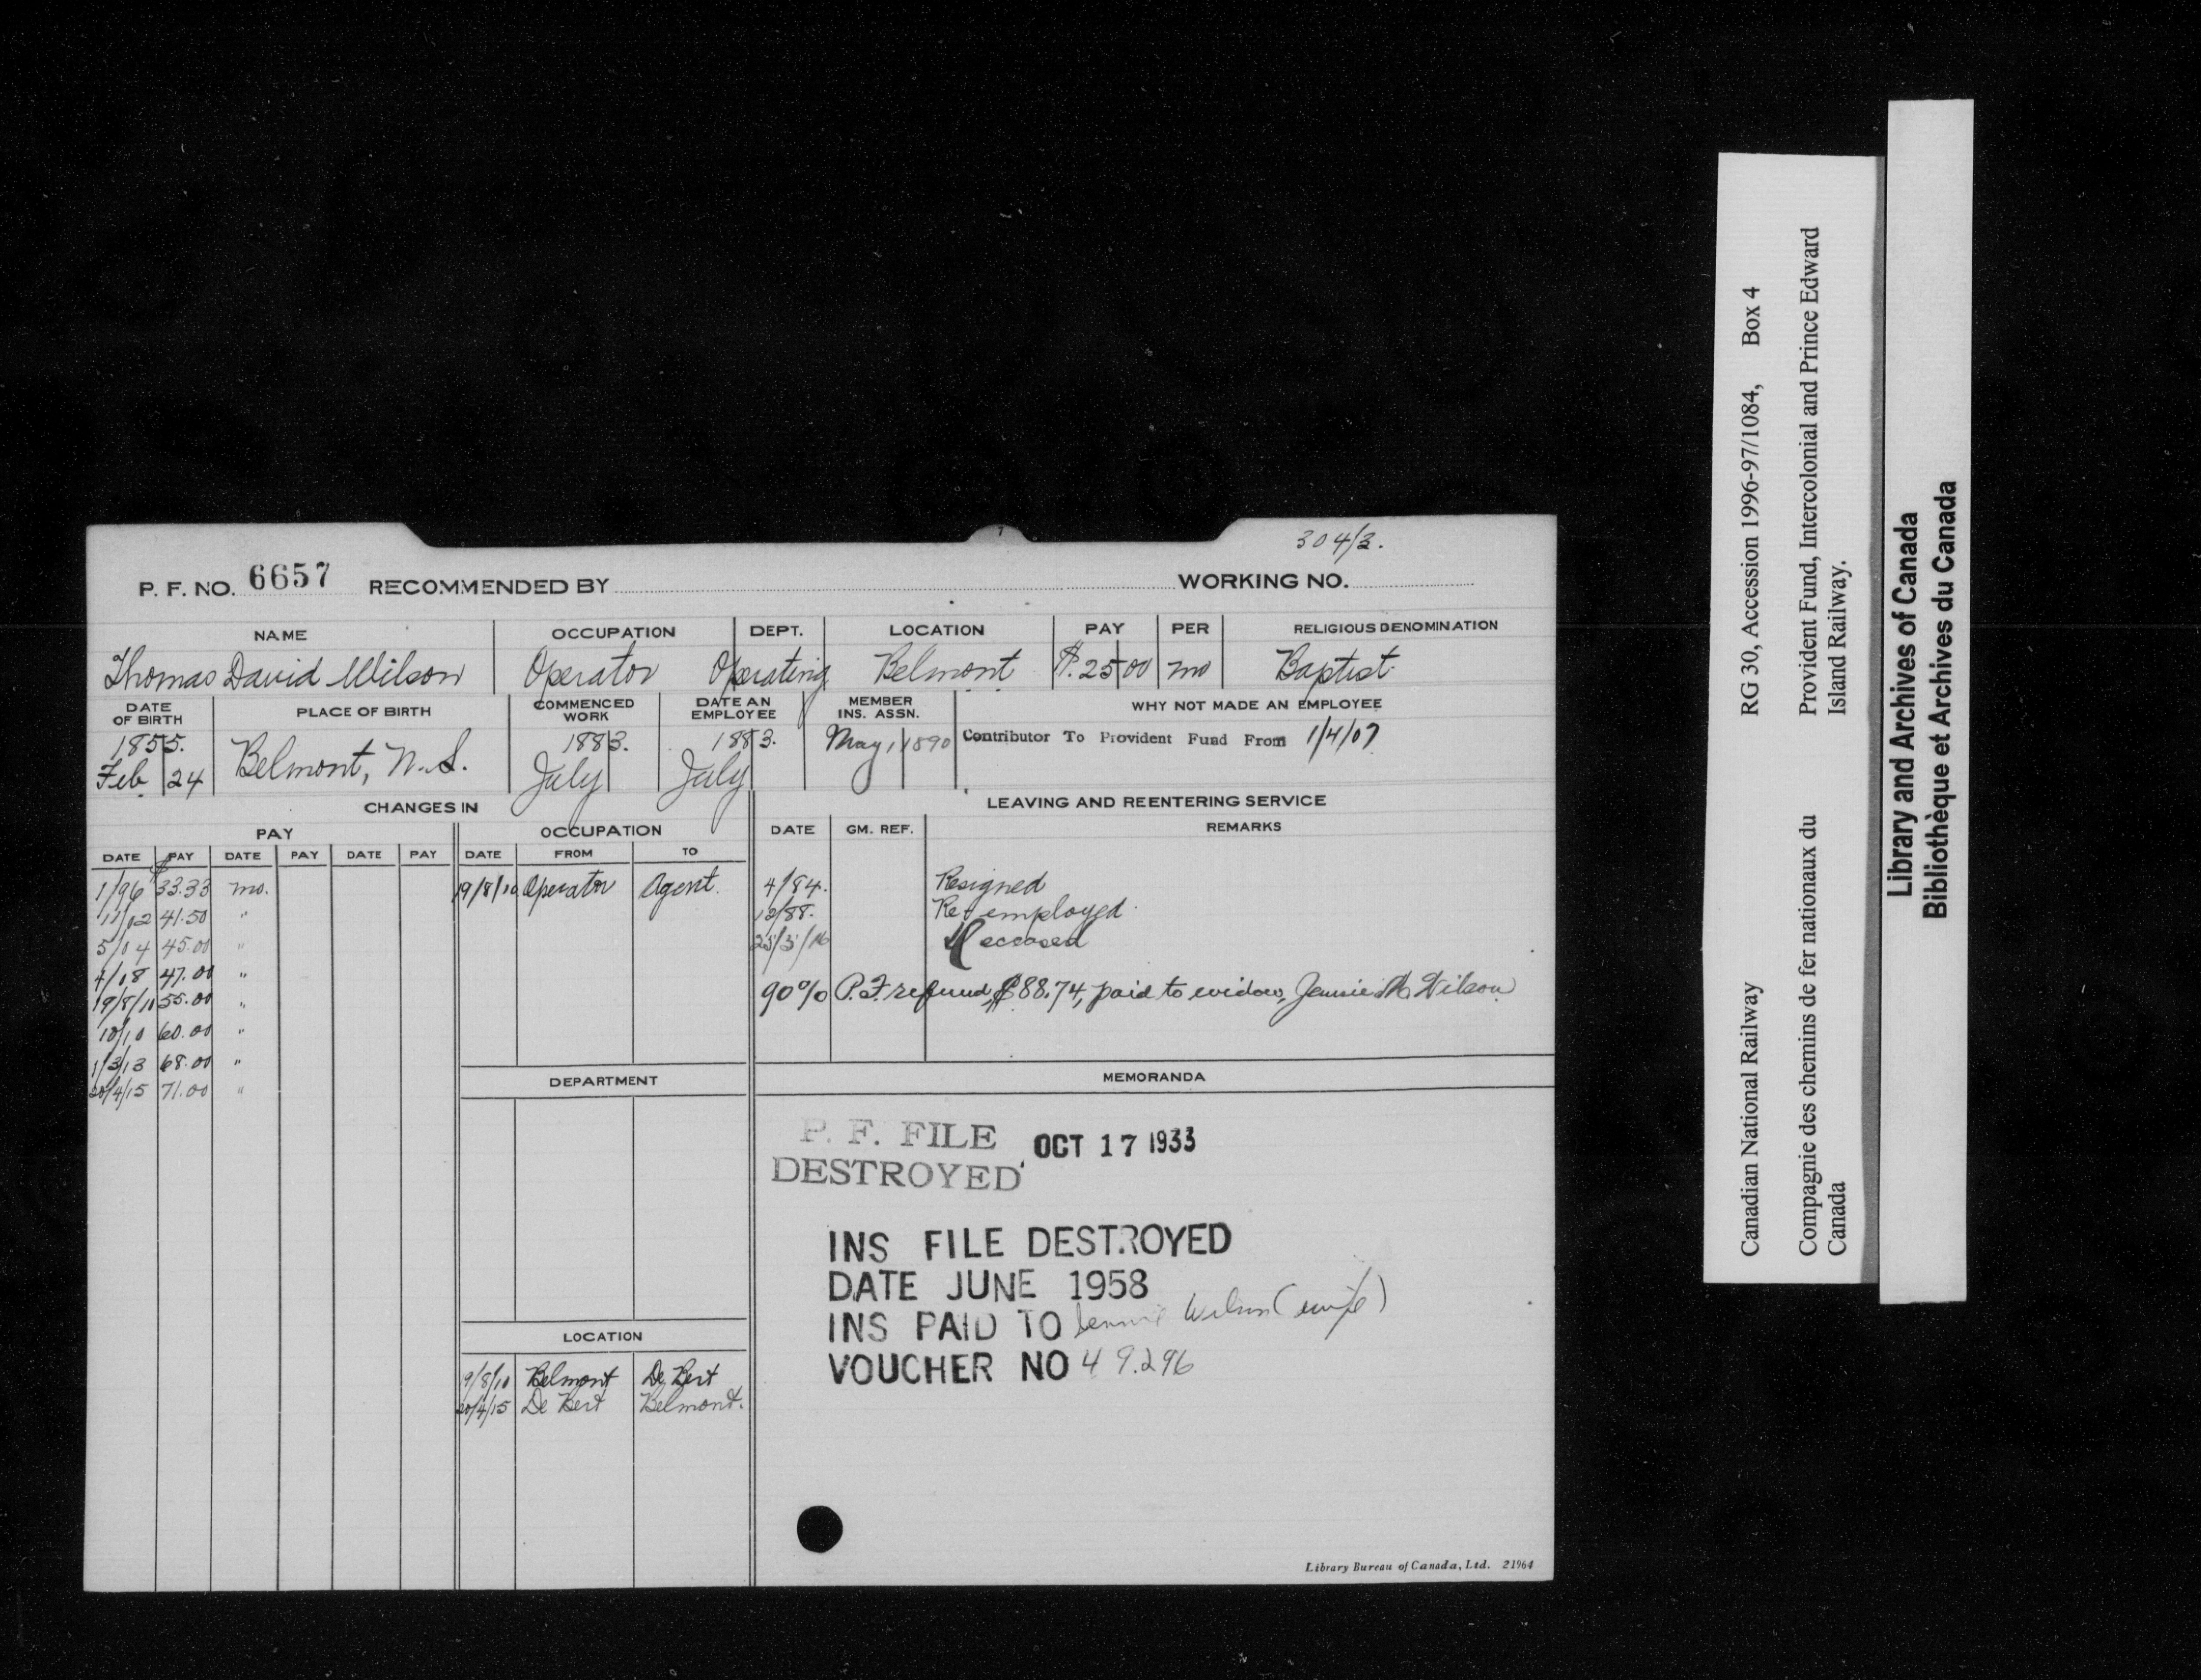 304/3.
P. F. NO. 6657 RECOMMENDED BY WORKING NO.
NAME OCCUPATION DEPT. LOCATION PAY PER RELIGIOUS DENOMINATION
Thomas David Wilson Operator Operating Belmont $.25 00 mo Baptist
DATE OF BIRTH PLACE OF BIRTH COMMENCED WORK DATE AN EMPLOYEE MEMBER INS. ASSN. WHY NOT MADE AN EMPLOYEE
1855. 1883. 1883. May, 1 1890 Contributor To Provident Fund From 1/4/07
Feb 24 Belmont, N.S. July July
CHANGES IN LEAVING AND REENTERING SERVICE
PAY OCCUPATION DATE GM. REF. REMARKS
DATE PAY DATE PAY DATE PAY DATE FROM TO
1/96 $33.33 mo. 19/8/10 Operator Agent. 4/84. Resigned
11/02 41.50 " /88. Re-employed.
5/04 45.00 " Deceased
47.00 "
19/8/10 55.00 " 90% P.F. refund, $88.74, paid to widow, Jennie Wilson
10/10 60.00 "
1/3/13 68.00 "
20/4/15 71.00 "
DEPARTMENT MEMORANDA
P. F. FILE DESTROYED OCT 17 1933
INS FILE DESTROYED
DATE JUNE 1958
INS PAID TO Jennie Wilson (wife)
VOUCHER NO 49.296
LOCATION
9/8/10 Belmont De Bert
20/4/15 De Bert Belmont.
Library Bureau of Canada, Ltd. 21964
RG 30, Accession 1996-97/1084, Box 4
Canadian National Railway
Provident Fund, Intercolonial and Prince Edward
Island Railway.
Compagnie des chemins de fer nationaux du
Canada
Library and Archives of Canada
Bibliothèque et Archives du Canada